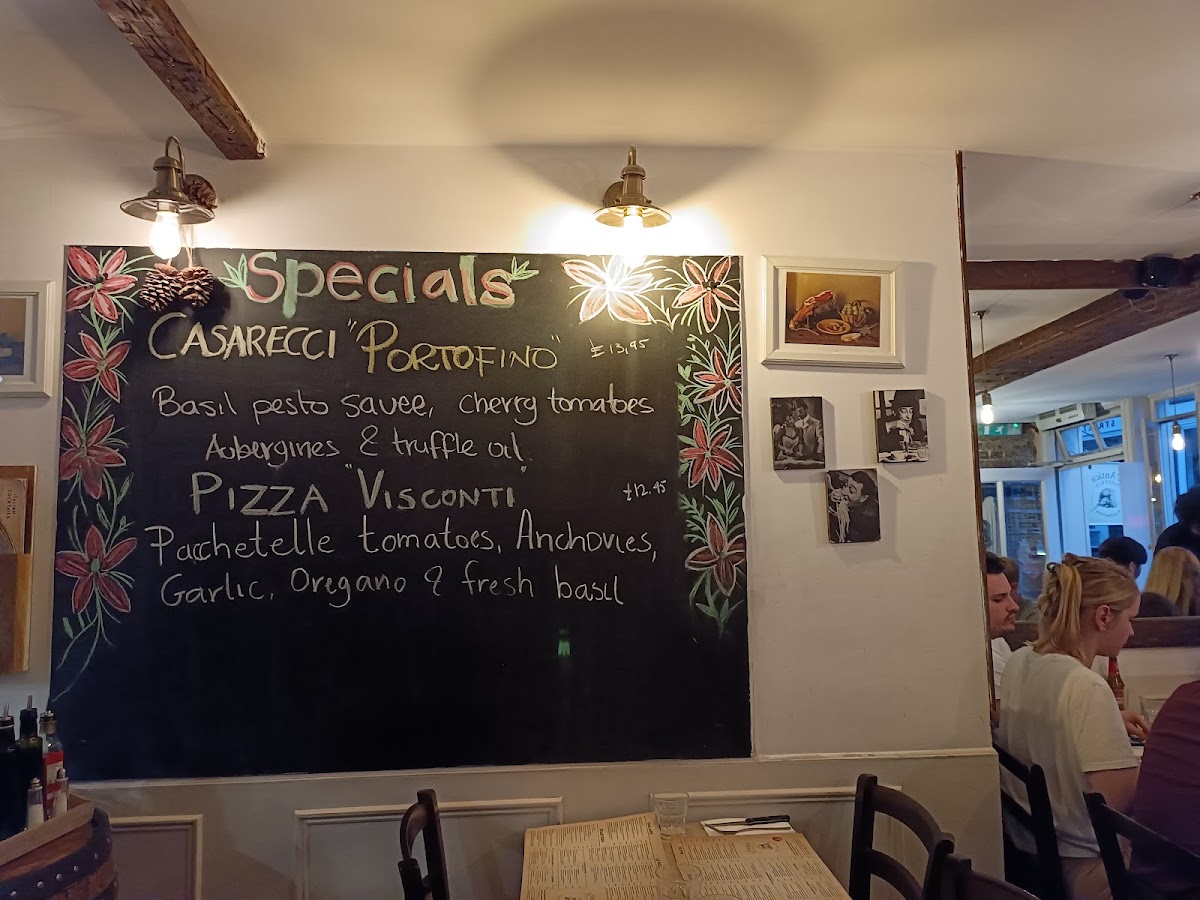 Specials
CASARECCI "PORTOFINO" £13,95
Basil pesto sauce, cherry tomatoes
Aubergines & truffle oil.
PIZZA "VISCONTI" £12.95
Pacchetelle tomatoes, Anchovies,
Garlic, Oregano & fresh basil
Antica